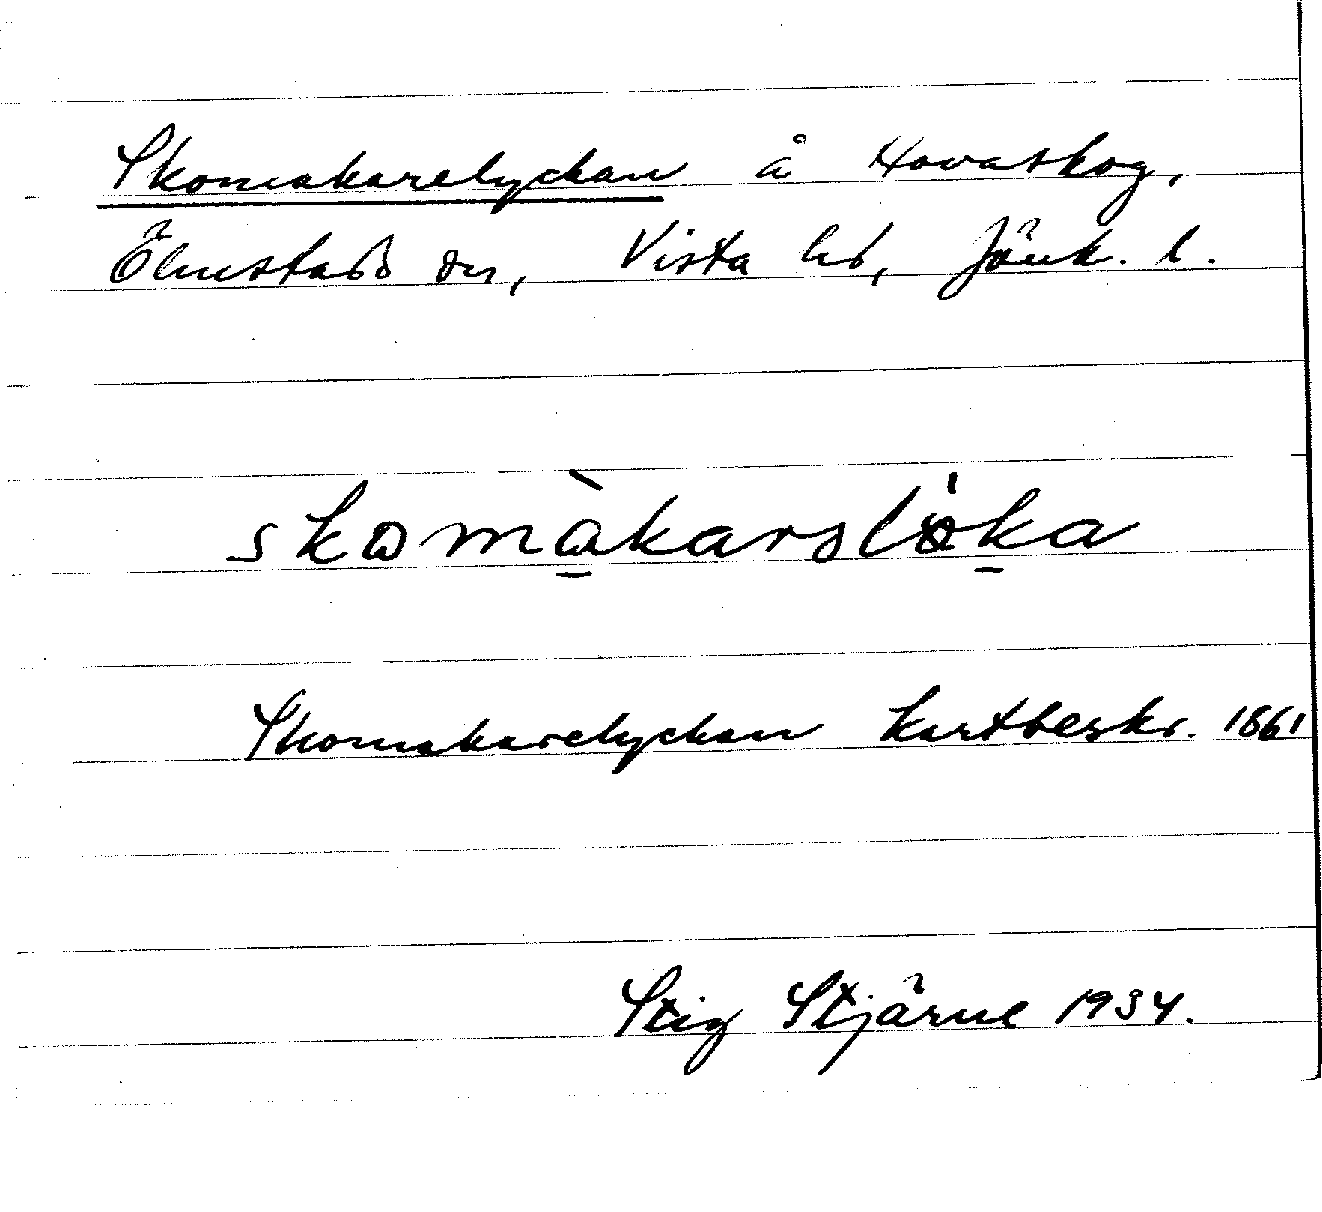 Skomakarelyckan å Hovaskog,
Ölmstads sn, Vista hd, Jönk. l.
skomàkarslöka
Skomakarelyckan Kartbeskr. 1861
Stig Stjärne 1934.